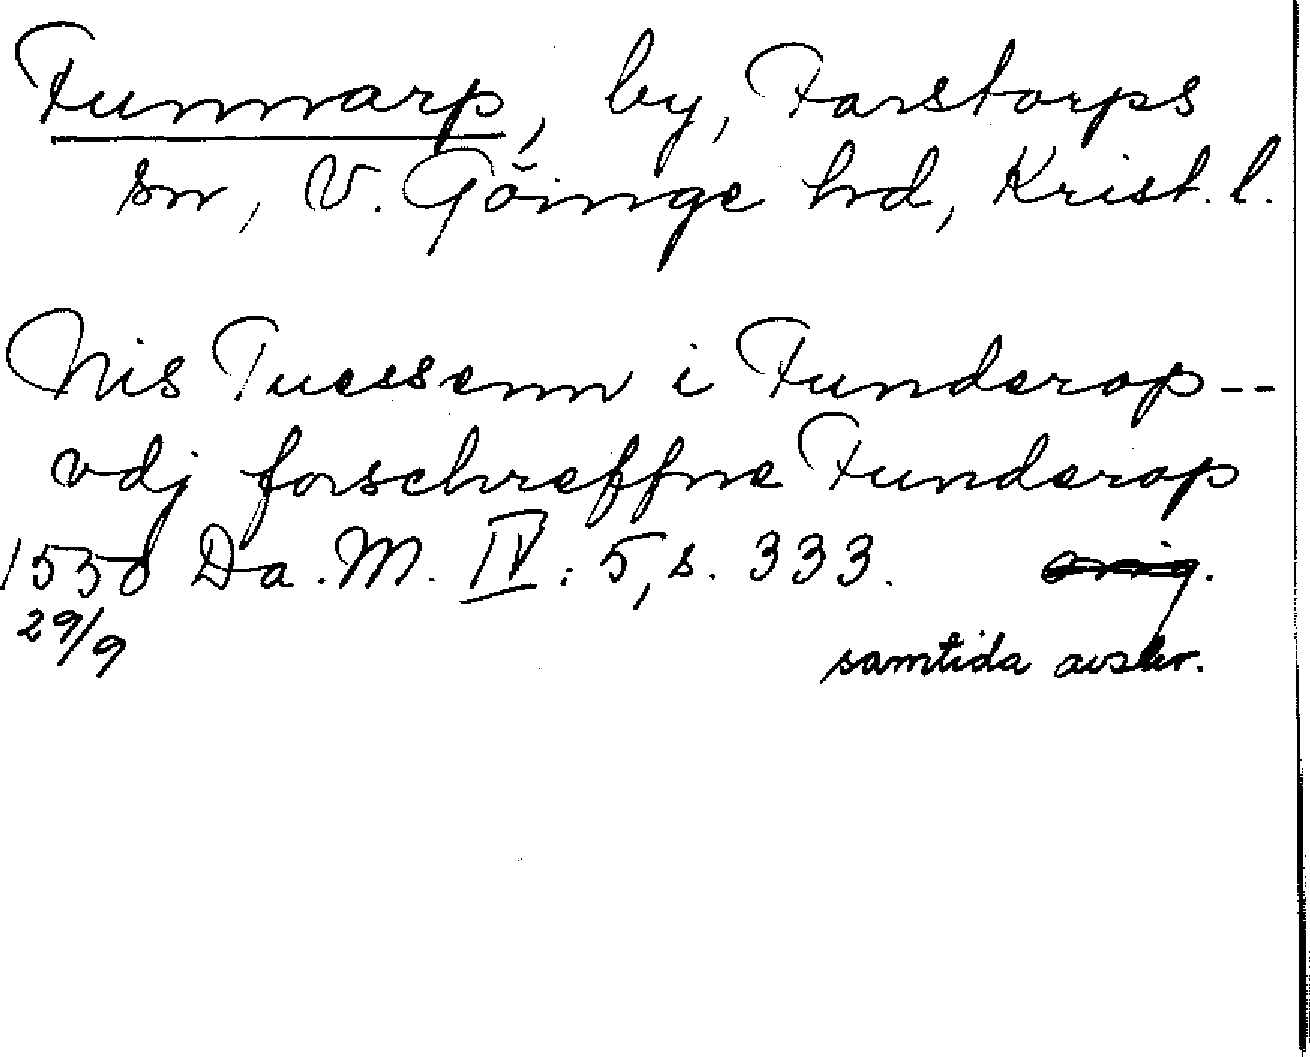 Funnarp, by, Farstorps
sn, V. Göinge hd, Krist. l.
Nis Tuessenn i Funderop--
vdj forschreffne Funderop
1530 Da. M. IV: 5, s. 333. orig.
29/9
samtida avskr.